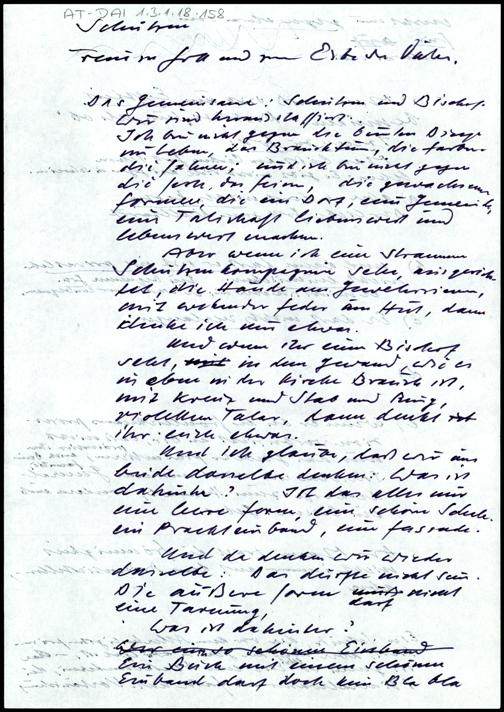 AT-DAI 1.3.1.18.158
Schützen
Treu zu Gott und zum Erbe der Väter.
Das Gemeinsame: Schützen und Bischof.
Wir sind
Ich bin nicht gegen die bunten Dinge
im Leben, das Brauchtum, die Farben
die Fahnen, und ich bin nicht gegen
die Form, das Feiern, die gewachsenen
Formen, die ein Dorf, eine Gemeinde,
eine Talschaft liebenswert und
lebenswert machen.
Aber wenn ich eine stramme
Schützenkompagnie sehe, ausgerich-
tet, die Hände am Gewehrriemen,
mit wehender Feder am Hut, dann
denke ich mir etwas.
Und wenn ihr einen Bischof
seht, mit in dem Gewand, wie es
in eben in der Kirche Brauch ist,
mit Kreuz und Stab und Ring,
violettem Talar, dann denkt ihr
ihr euch etwas.
Und ich glaube, daß wir uns
beide dasselbe denken: Was ist
dahinter? Ist das alles nur
eine leere Form, eine schöne Schale,
ein Prachteinband, eine Fassade.
Und da denken wir wieder
dasselbe: Das dürfte nicht sein.
Die äußere Form muß nicht
darf
eine Tarnung,
Was ist dahinter?
Wer einen so schönen Einband
Ein Buch mit einem schönen
Einband darf doch kein Bla bla